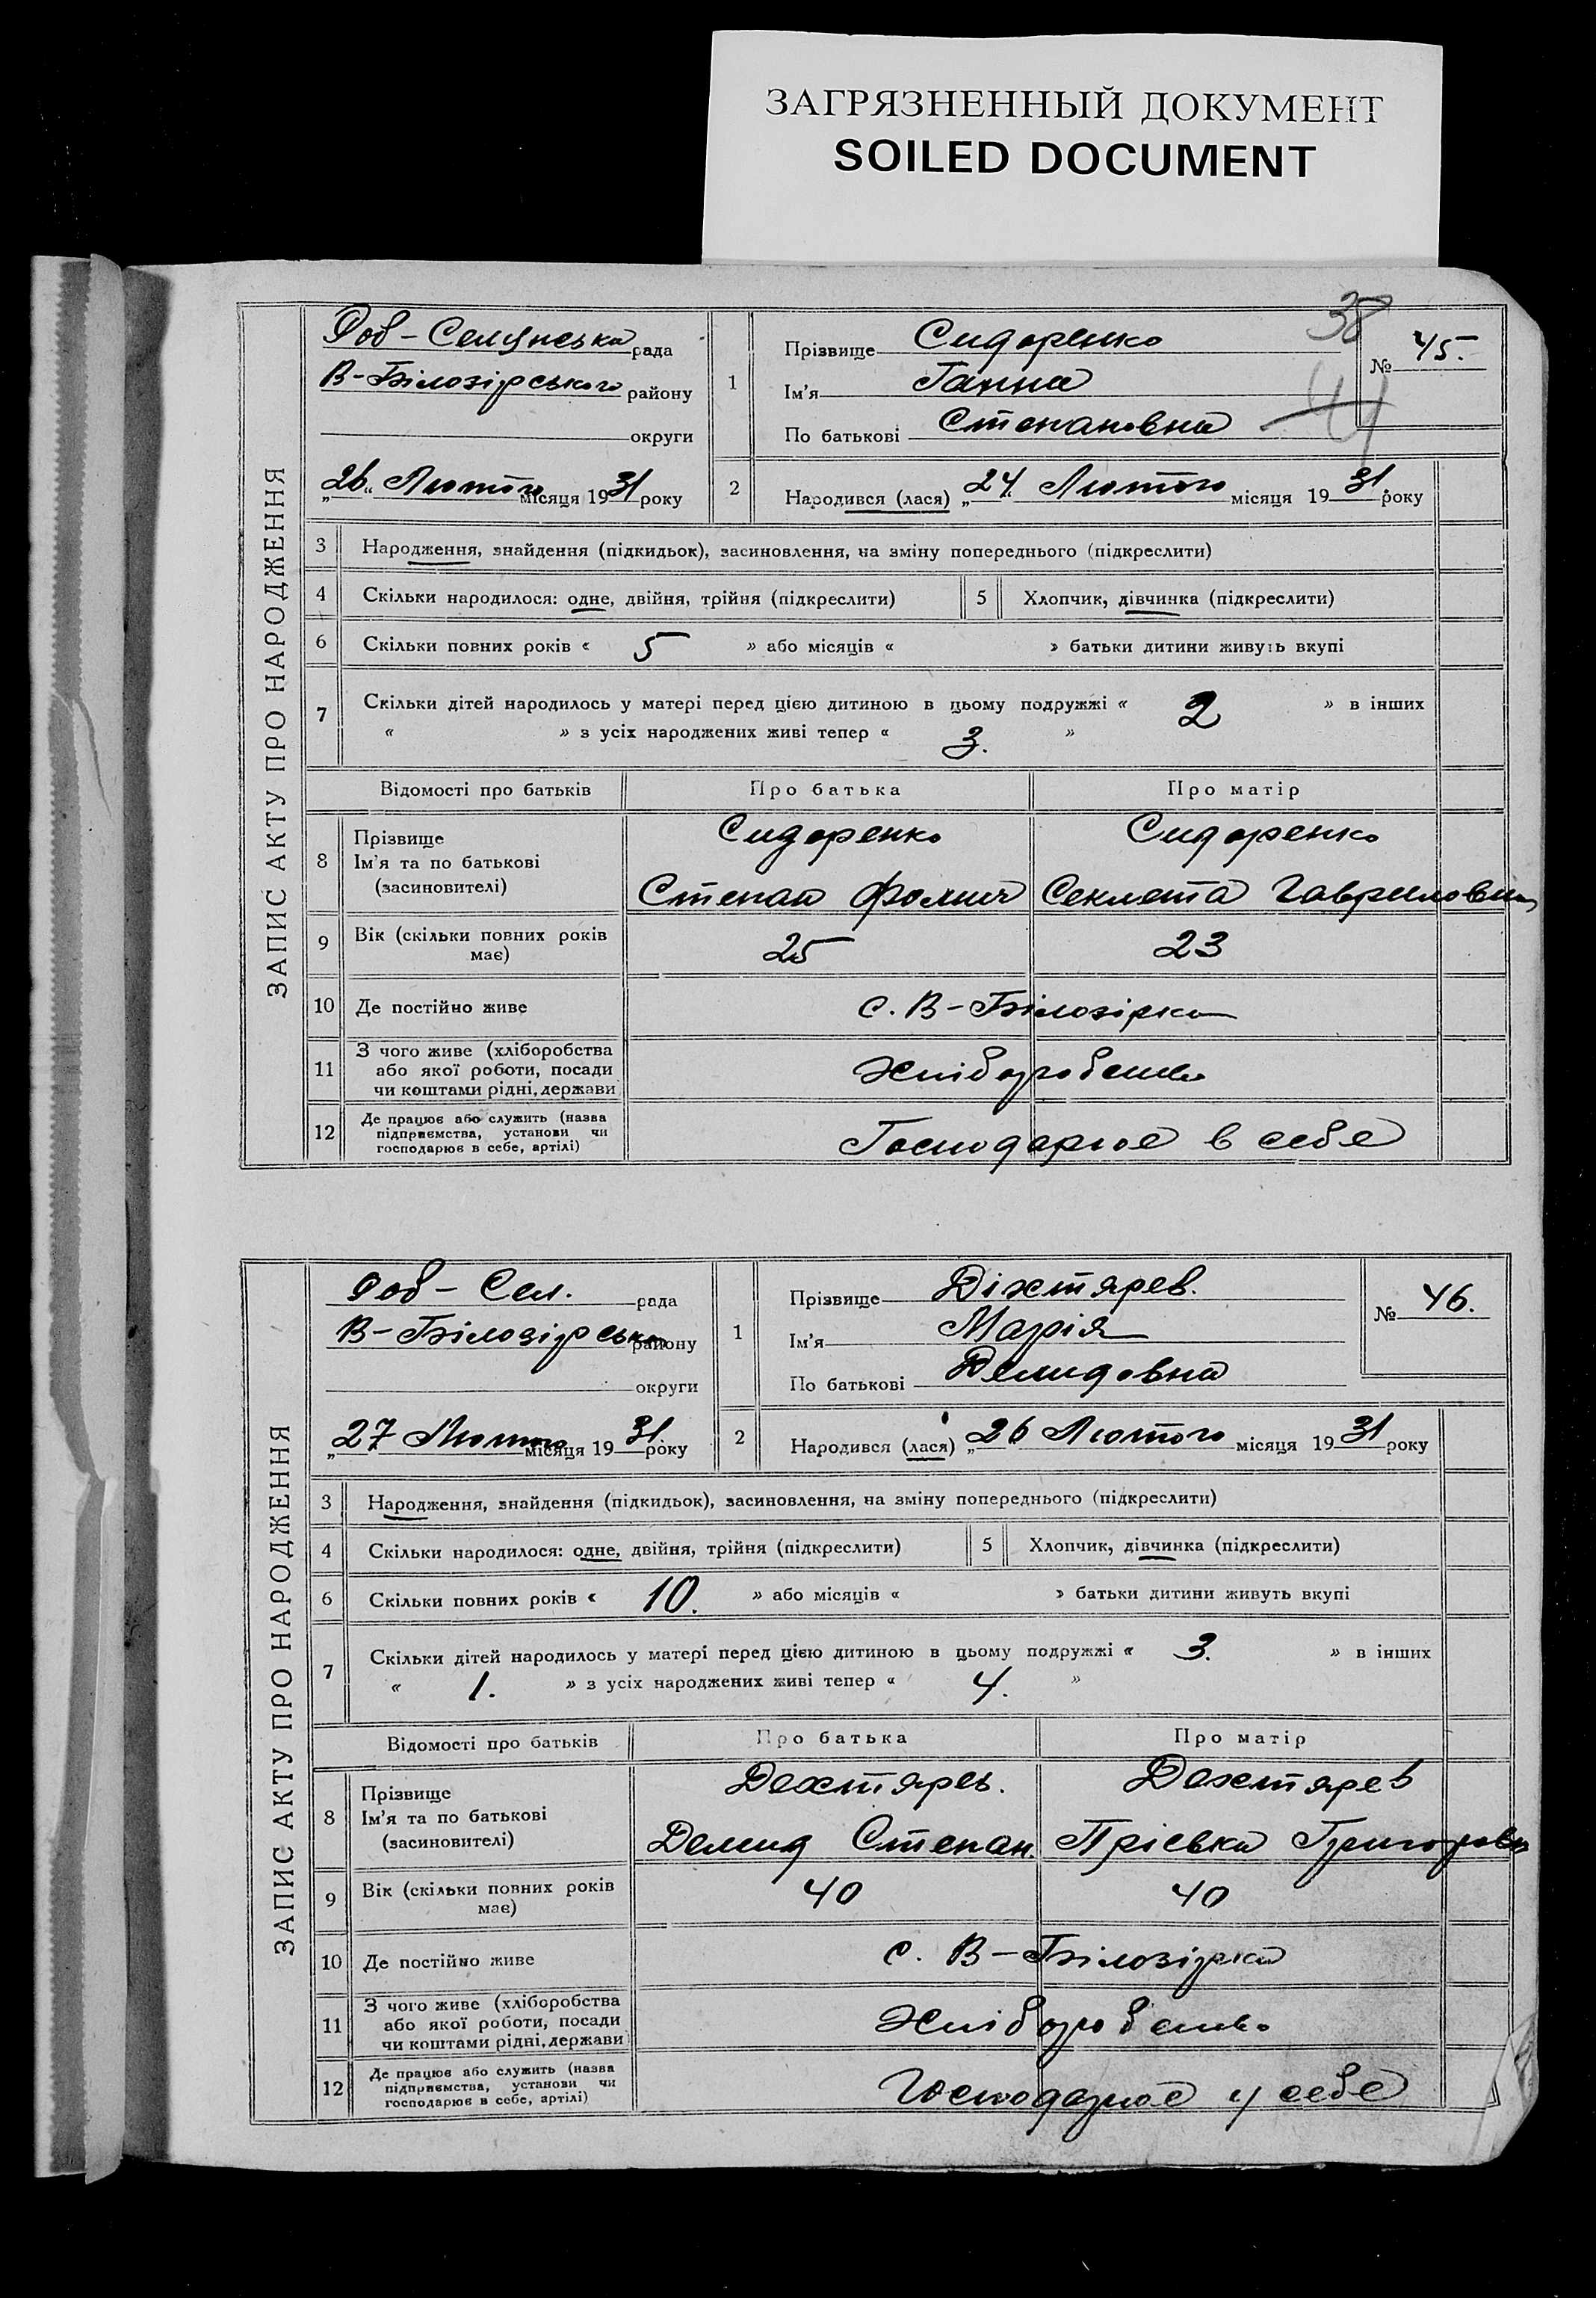 ЗАГРЯЗНЕННЫЙ ДОКУМЕНТ
SOILED DOCUMENT
38
44
ЗАПИС АКТУ ПРО НАРОДЖЕННЯ
рада
В-Білозірського району
округи
„26„ Лютого місяця 1931 року
1
Прізвище Сидоренко
Ім'я Ганна
По батькові Степановна
№ 45.
2
Народився (лася) „24„ Лютого місяця 1931 року
3 Народження, знайдення (підкидьок), засиновлення, на зміну попереднього (підкреслити)
4 Скільки народилося: одне, двійня, трійня (підкреслити) 5 Хлопчик, дівчинка (підкреслити)
6 Скільки повних років « 5 » або місяців « » батьки дитини живуть вкупі
7 Скільки дітей народилось у матері перед цією дитиною в цьому подружжі « 2 » в інших
« » з усіх народжених живі тепер « 3. »
Відомості про батьків Про батька Про матір
8 Прізвище
Ім'я та по батькові
(засиновителі)
Сидоренко Сидоренко
Степан Фомич Секлета Гавриловна
9 Вік (скільки повних років має) 25 23
10 Де постійно живе с. В-Білозірка
11 З чого живе (хліборобства
або якої роботи, посади
чи коштами рідні, держави
Хліборобство
12 Де працює або служить (назва
підприємства, установи чи
господарює в себе, артілі)
Господарює в себе
ЗАПИС АКТУ ПРО НАРОДЖЕННЯ
Сел. рада
В-Білозірсько району
округи
„27 Лютого місяця 1931 року
1
Прізвище Діхтярев.
Ім'я Марія
По батькові Демидовна
№ 46.
2
Народився (лася) „26 Лютого місяця 1931 року
3 Народження, знайдення (підкидьок), засиновлення, на зміну попереднього (підкреслити)
4 Скільки народилося: одне, двійня, трійня (підкреслити) 5 Хлопчик, дівчинка (підкреслити)
6 Скільки повних років « 10. » або місяців « » батьки дитини живуть вкупі
7 Скільки дітей народилось у матері перед цією дитиною в цьому подружжі « 3. » в інших
« 1. » з усіх народжених живі тепер « 4. »
Відомості про батьків Про батька Про матір
8 Прізвище
Ім'я та по батькові
(засиновителі)
Дехтярев. Дехтярев
Демид Степан
9 Вік (скільки повних років має) 40 40
10 Де постійно живе с. В-Білозірка
11 З чого живе (хліборобства
або якої роботи, посади
чи коштами рідні, держави
Хліборобство
12 Де працює або служить (назва
підприємства, установи чи
господарює в себе, артілі)
Господарює у себе